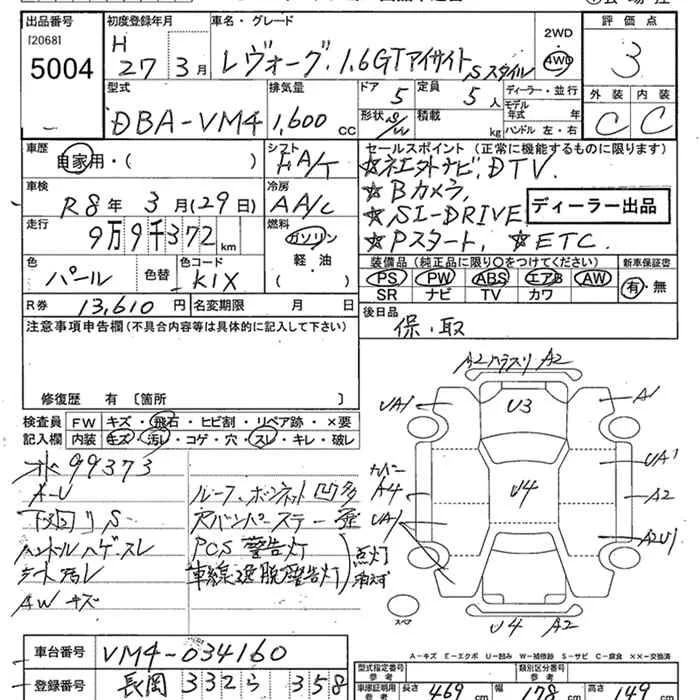 出品番号
[2068]
5004
初度登録年月
H 27年 3月
車名・グレード
レヴォーグ. 1.6GTアイサイト Sスタイル
2WD
4WD
評価点
3
外装 内装
C C
型式
DBA-VM4
排気量
1,600 cc
ドア 5
定員 5人
形状 S/W
積載 kg
ディーラー・並行
モデル年式 年
ハンドル 左・右
車歴
自家用・( )
シフト
FA/T
車検
R8年 3月(29日)
冷房
AA/C
走行
9万9千372km
燃料
ガソリン
軽・油
( )
色
パール
色替
色コード
K1X
R券 13,610円
名変期限 月 日
セールスポイント (正常に機能するものに限ります)
☆ネエ外ナビ, DTV.
☆Bカメラ,
☆SI-DRIVE
ディーラー出品
☆Pスタート, ☆ETC.
装備品 (純正品に限り○をつけてください)
PS PW ABS エアB AW
SR ナビ TV カワ
新車保証書
有・無
後日品
保・取
注意事項申告欄 (不具合内容等は具体的に記入して下さい)
修復歴 有 〔箇所 〕
検査員記入欄
FW キズ・飛石・ヒビ割・リペア跡・×要
内装 キズ・汚レ・コゲ・穴・スレ・キレ・破レ
99373
A-U
下回リS
ハンドルハゲ・スレ
シート汚レ
AWキズ
ルーフ、ボンネット凹多
PCS警告灯
車線逸脱警告灯
点灯
消えず
A2 A2
UA1
U3
A1
ナンバー
A4
UA1
U4
UA1
A2
A2U1
U4 A2
スペア
A-キズ E-エクボ U-凹み W-補修跡 S-サビ C-腐食 XX-交換済
車台番号
VM4-034160
登録番号
長岡 332 ら 358
型式指定番号
参考
類別区分番号
参考
車庫証明用
参考
長さ 469cm
幅 178cm
高さ 149cm